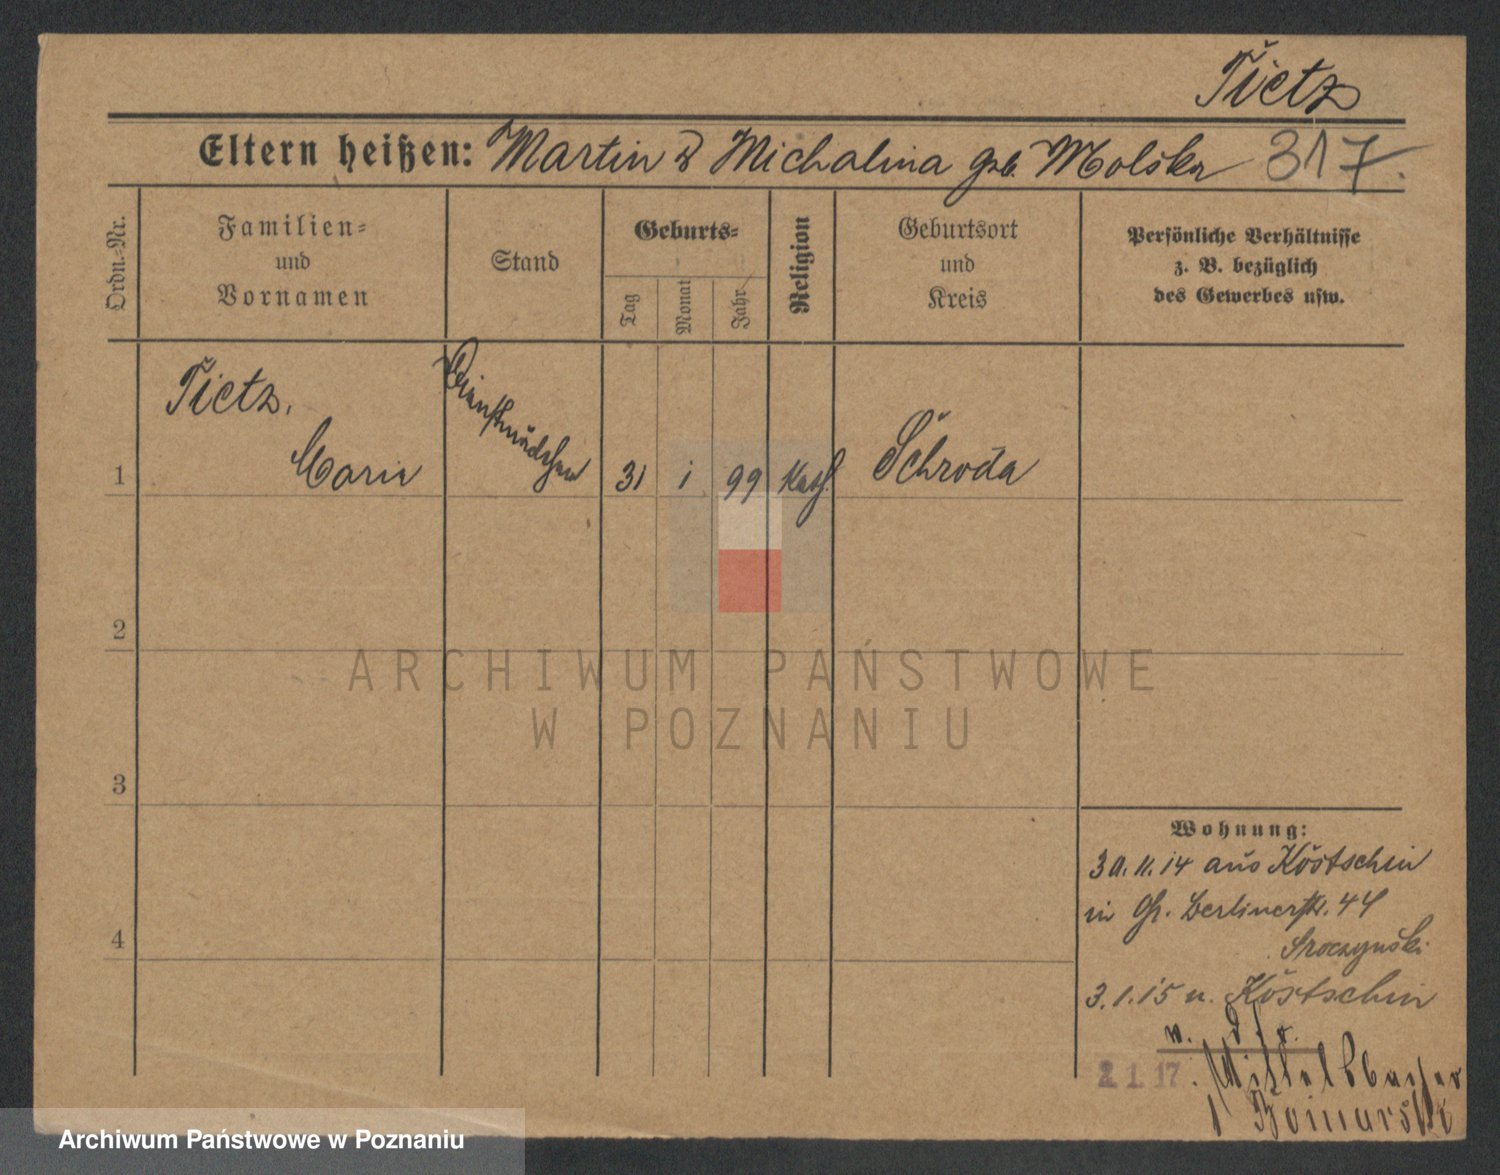 Tietz
Eltern heißen: Martin & Michalina geb. Molska 317.
Ordn.-Nr.
Familien-
und
Vornamen
Stand
Geburts-
Tag
Monat
Jahr
Religion
Geburtsort
und
Kreis
Persönliche Verhältnisse
z. B. bezüglich
des Gewerbes usw.
1
Tietz,
Marie
Dienstmädchen
31
1
99
Kath.
Schroda
2
3
4
ARCHIWUM PAŃSTWOWE
W POZNANIU
Wohnung:
30.11.14 aus Kostschin
in Gr. Berlinerstr. 44
Sroczynski
3.1.15 n. Kostschin
2.1.17
Archiwum Państwowe w Poznaniu